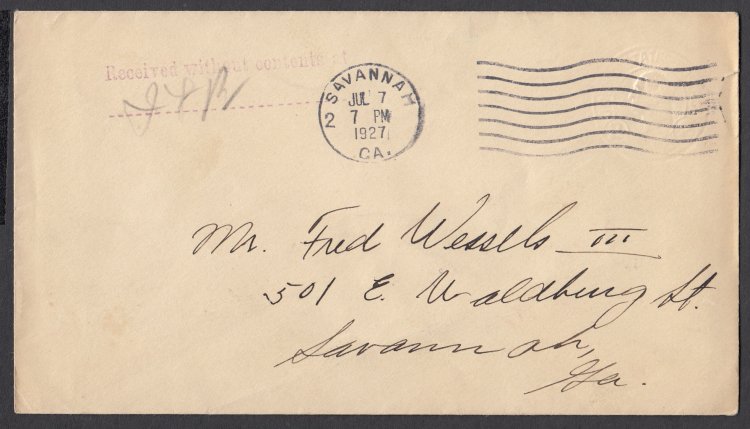 Received without contents at
SAVANNAH
JUL 7
7 PM
1927
GA.
2
Mr. Fred Wessels III
501 E. Waldburg St.
Savannah,
Ga.